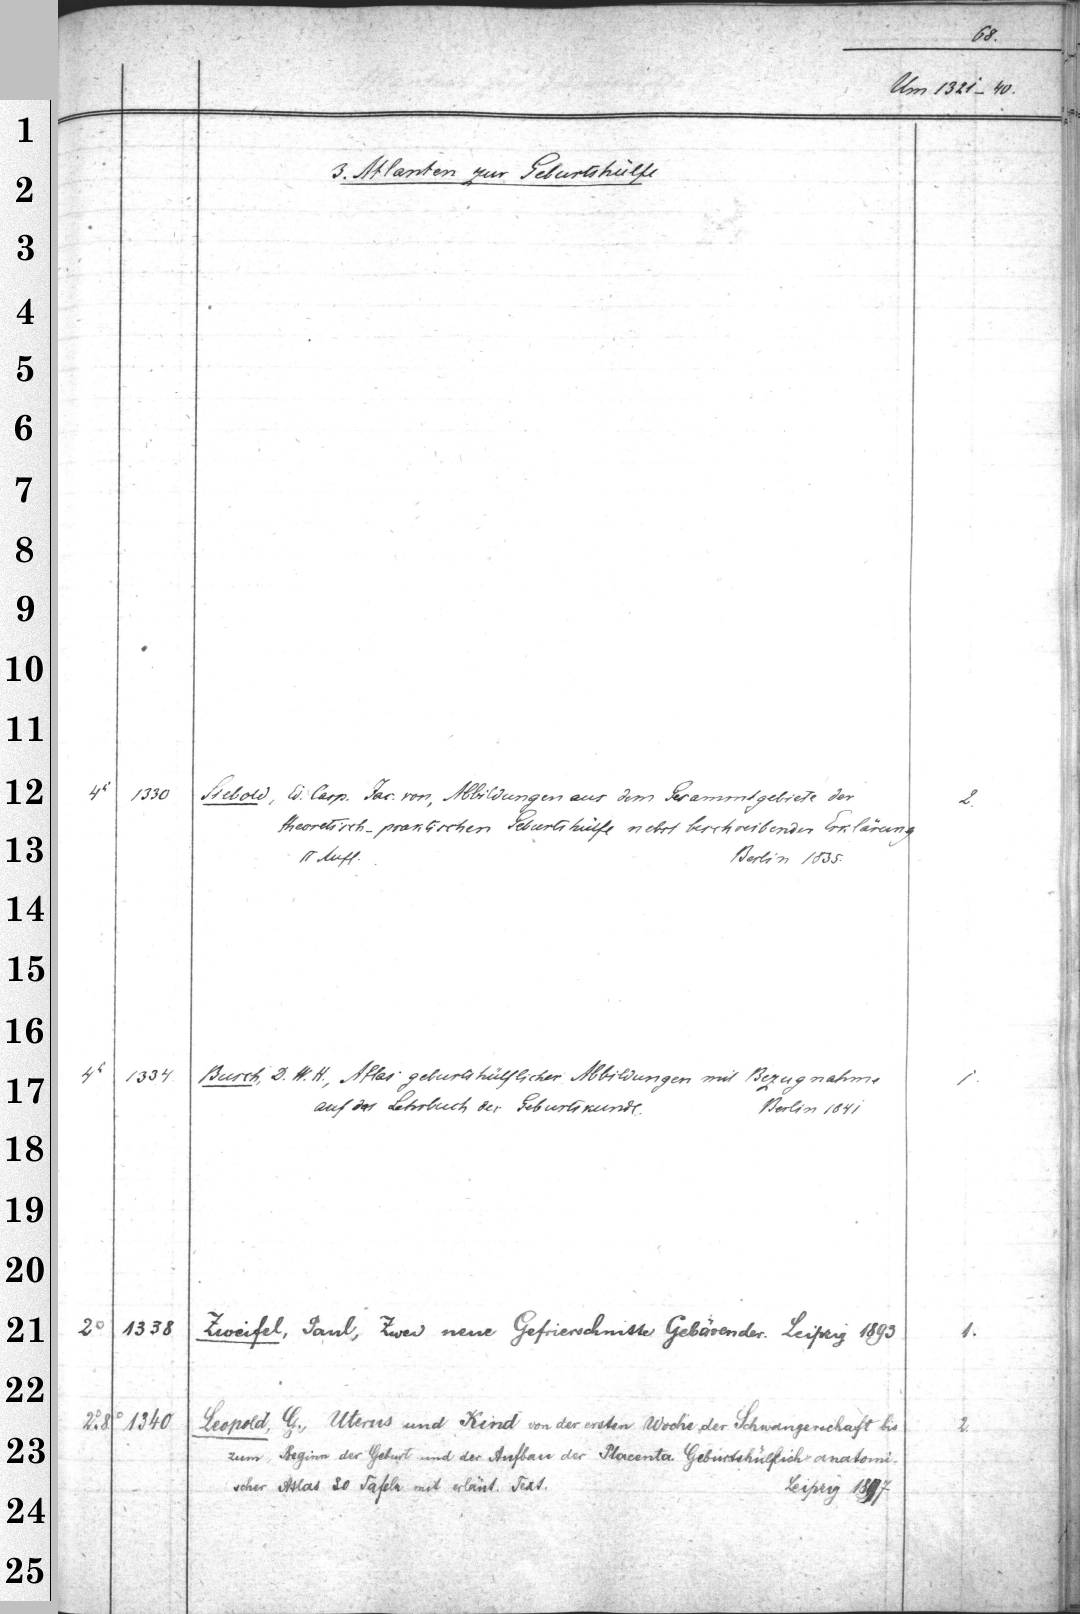 68.
Um 1321-40.
1
3. Atlanten zur Geburtshülfe
2
3
4
5
6
7
8
9
10
11
12 4° 1330 Siebold, Ed. Casp. Jac. von, Abbildungen aus dem Gesammtgebiete der 2.
theoretisch-praktischen Geburtshülfe nebst beschreibender Erklärung
13 II Aufl. Berlin 1835.
14
15
16
4° 1334 Busch, D. W. H., Atlas geburtshülflicher Abbildungen mit Bezugnahme 1.
17 auf das Lehrbuch der Geburtskunde. Berlin 1841
18
19
20
21 2° 1338 Zweifel, Paul, Zwei neue Gefrierschnitte Gebärender. Leipzig 1893 1.
22
2° 8° 1340 Leopold, G., Uterus und Kind von der ersten Woche der Schwangerschaft bis 2.
23 zum Beginn der Geburt und der Aufbau der Placenta Geburtshülflich-anatomi-
scher Atlas 30 Tafeln mit erläut. Text. Leipzig 1897
24
25